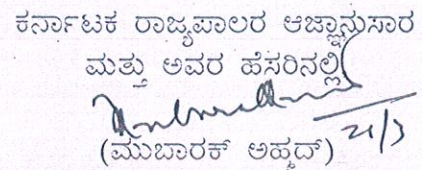 ಕರ್ನಾಟಕ ರಾಜ್ಯಪಾಲರ ಆಜ್ಞಾನುಸಾರ
ಮತ್ತು ಅವರ ಹೆಸರಿನಲ್ಲಿ
21/3
(ಮುಬಾರಕ್ ಅಹ್ಮದ್)